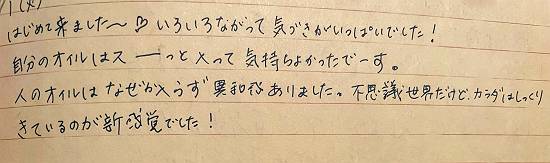 1(火)
はじめて来ました〜♡いろいろながって気づきがいっぱいでした!
自分のオイルはスーーっと入って気持ちよかったでーす。
人のオイルはなぜか入らず異和感ありました。不思議世界だけど、カラダはしっくり
きているのが新感覚でした!